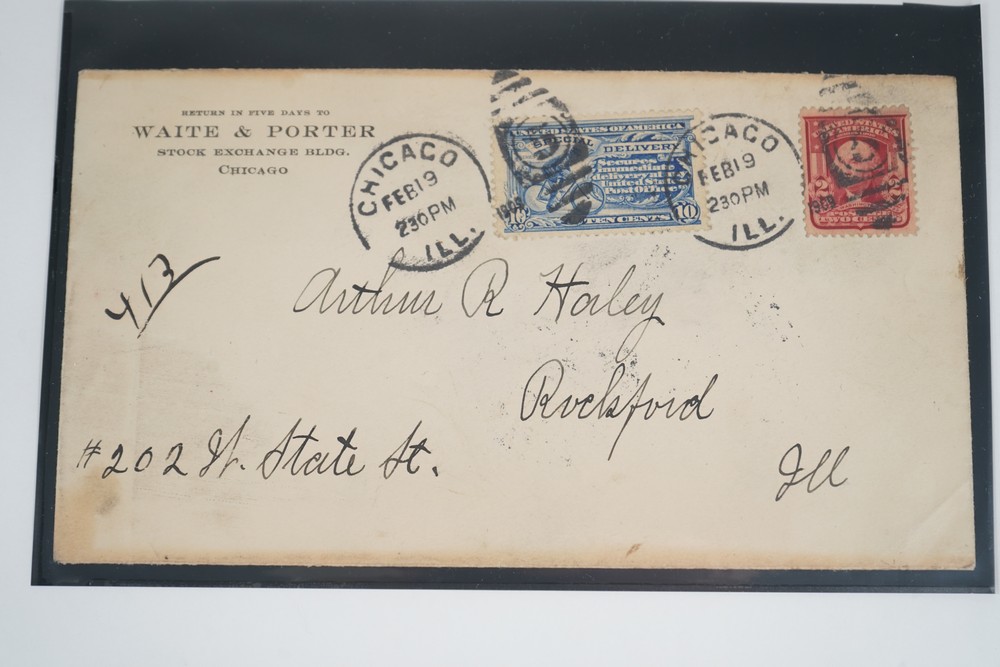 RETURN IN FIVE DAYS TO
WAITE & PORTER
STOCK EXCHANGE BLDG.
CHICAGO
CHICAGO
FEB 19
230 PM
ILL.
UNITED STATES OF AMERICA
SPECIAL DELIVERY
Secures
immediate
delivery at a
United States
Post Office
10 TEN CENTS 10
CHICAGO
FEB 19
230 PM
ILL.
UNITED STATES
OF AMERICA
2 2
TWO CENTS
413
Arthur R Haley
Rockford
#202 W. State St.
Ill